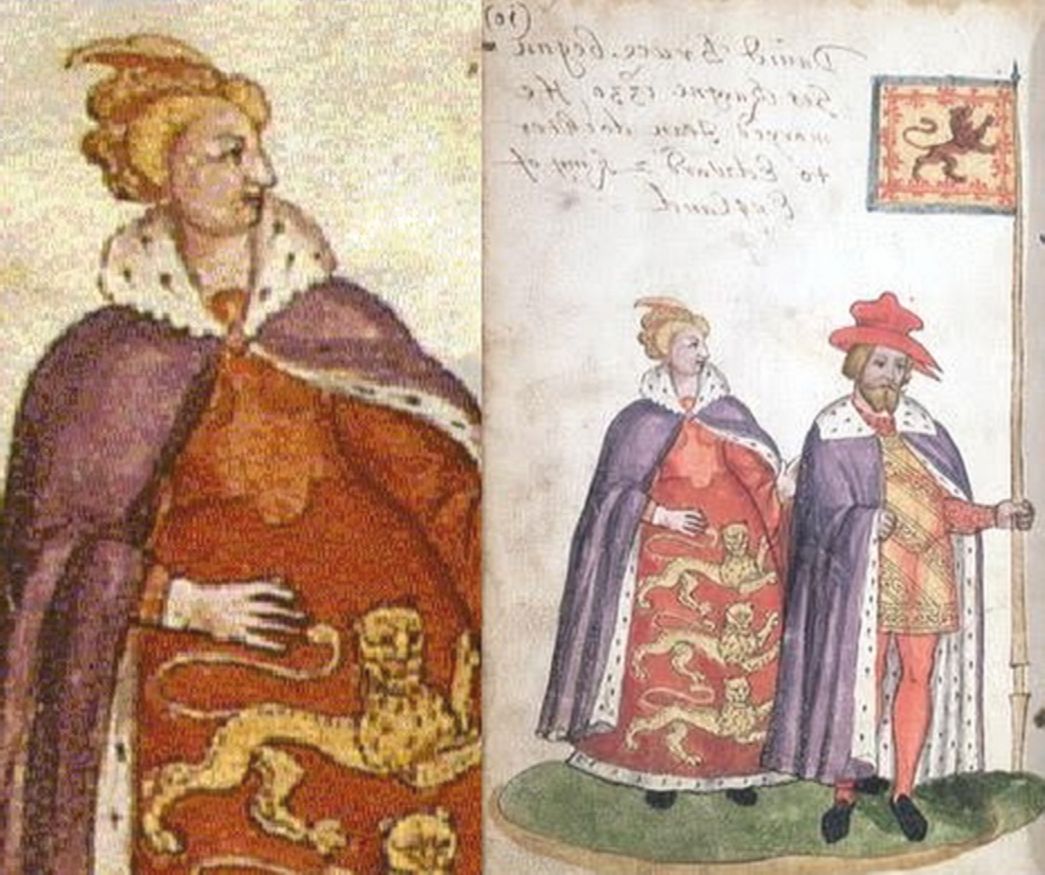 Dauid Bruce begane
his Raigne 1330 He
maryed Jean dochter
to Edvard 2 King of
England